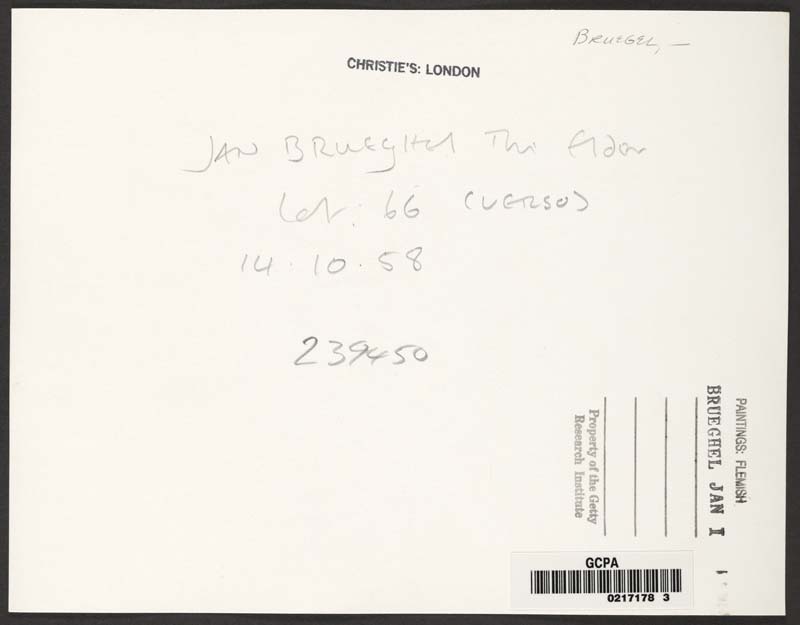 BRUEGEL, —
CHRISTIE'S: LONDON
JAN BRUEGHEL The Elder
Lot: 66 (VERSO)
14.10.58
239450
PAINTINGS: FLEMISH
BRUEGHEL JAN I
Property of the Getty
Research Institute
GCPA
0217178 3